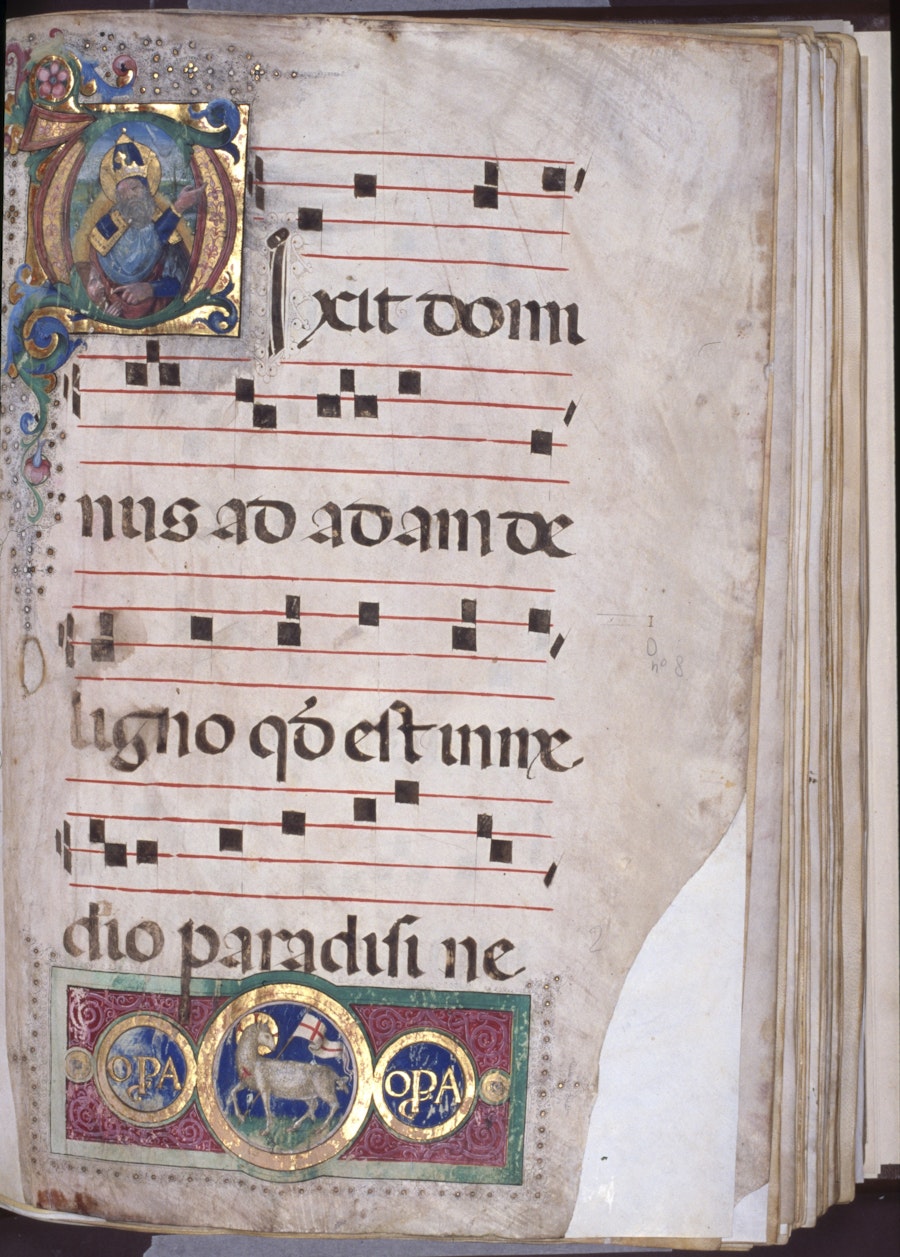 DIxit domi
nus ad adam de
ligno qđ est in me
dio paradisi ne
OPA OPA
D
nº 8
2